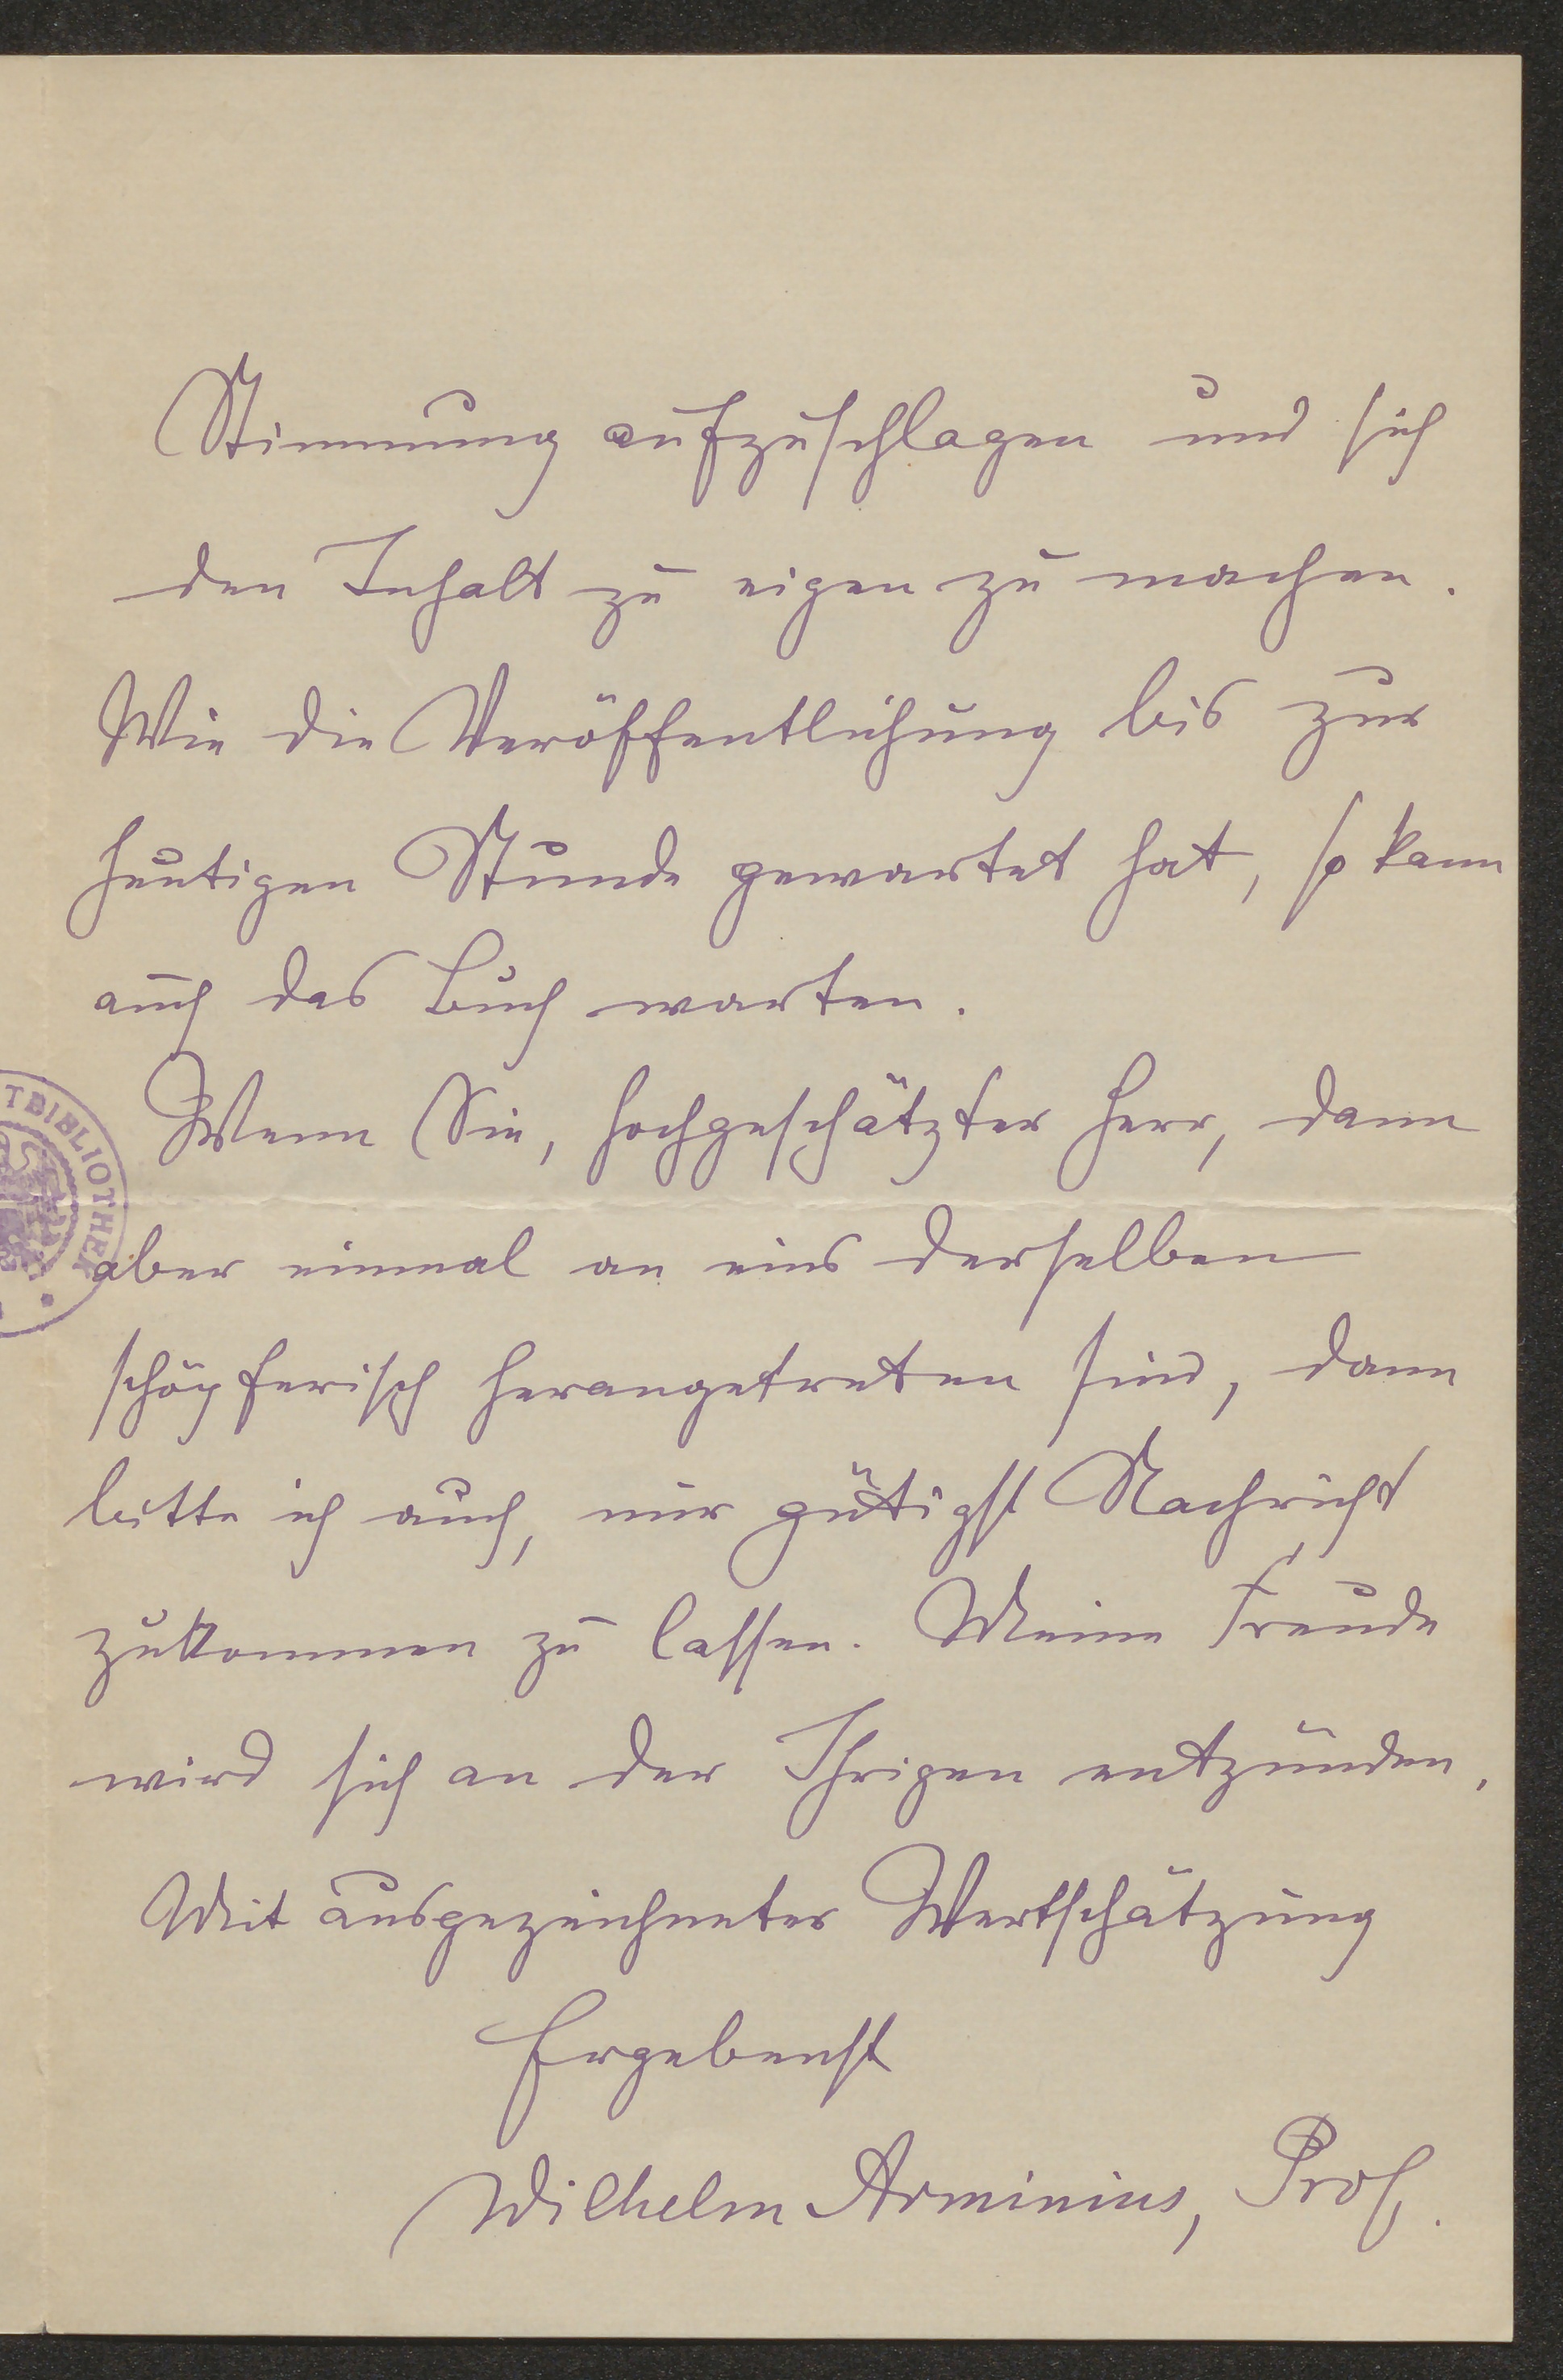 Stimmung aufzuschlagen und sich
den Inhalt zu eigen zu machen.
Wie die Veröffentlichung bis zur
heutigen Stunde gewartet hat, so kann
auch das Buch warten.
Wenn Sie, hochgeschätzter Herr, dann
TBIBLIOTHEK
aber einmal an eins derselben
schöpferisch herangetreten sind, dann
bitte ich auch, mir gütigst Nachricht
zukommen zu lassen. Meine Freude
wird sich an der Ihrigen entzünden.
Mit ausgezeichneter Wertschätzung
Ergebenst
Wilhelm Arminius, Prof.